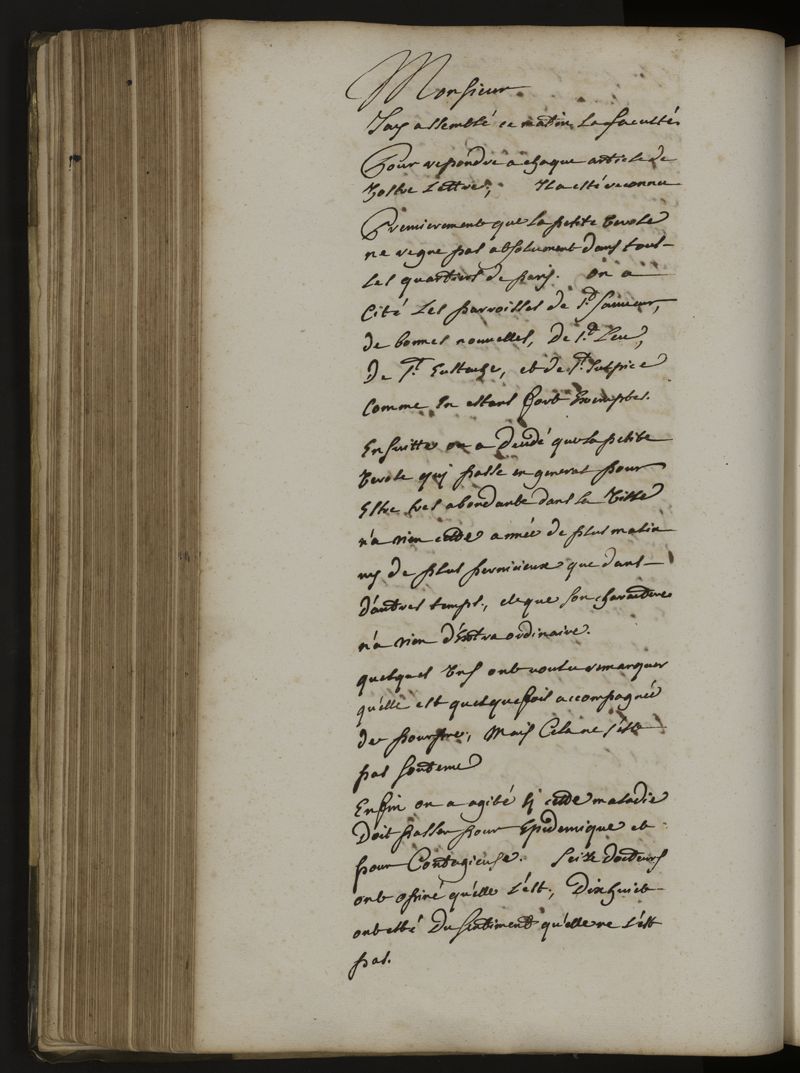 Monsieur
J'ay assemblé ce matin la faculté
Pour repondre a chaque article de
Vostre Lettre, Il a esté reconnu
Premierement que la petite Verole
ne regne pas absolument dans tous
les quartiers de paris. on a
Cité Les parroisses de St. Sauveur,
de bonnes nouvelles, De St. Leu,
De St. Eustache, et de St. Sulpice
Comme En estans fort Exemptes.
Ensuitte on a decidé que la petite
Verole qui passe en general pour
Estre tres abondante dans la Ville
n'a rien cette année de plus malin
ny de plus pernicieux que dans
d'autres temps, et que son charactere
n'a rien d'Extraordinaire.
quelques Uns ont voulu remarquer
qu'elle est quelquefois accompagnée
de pourpre, Mais Cela ne s'est
pas soutenu
Enfin on a agité si cette maladie
Doit passer pour Epidemique et
pour Contagieuse. Seize docteurs
ont opiné qu'elle l'est, Dix huict
ont esté Du sentiment qu'elle ne l'est
pas.